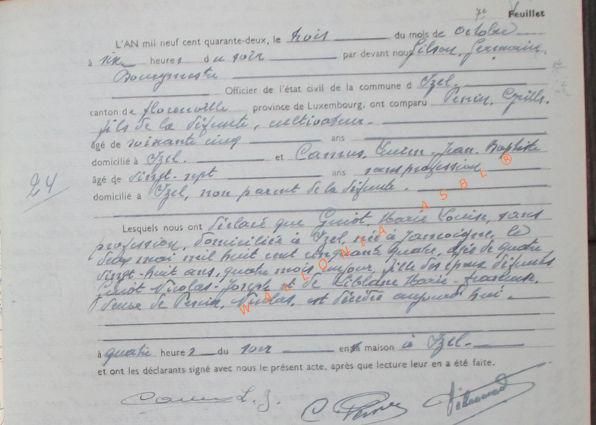 7e Feuillet
L'AN mil neuf cent quarante-deux, le trois du mois de octobre
à six heures du soir par devant nous Gilson, Germain,
Bourgmestre
Officier de l'état civil de la commune d'Izel,
canton de florenville province de Luxembourg, ont comparu Perin, Cyrille,
fils de la défunte, cultivateur.
âgé de soixante cinq ans
domicilié à Izel et Camus, Jean-Baptiste
âgé de vingt-sept ans sans profession
domicilié à Izel, non parent de la défunte.
24
Lesquels nous ont déclaré que Guiot Marie Louise, sans
profession, domiciliée à Izel née à Jamoigne, le
deux mai mil huit cent cinquante quatre, âgée de quatre
vingt-huit ans, quatre mois, un jour, fille des époux défunts
Guiot Nicolas-Joseph et de Leblanc Marie-
veuve de Perin, Nicolas, est décédée aujourd'hui.
à quatre heures du soir en sa maison à Izel.
et ont les déclarants signé avec nous le présent acte, après que lecture leur en a été faite.
Camus L. J. C. Perin
WALONIA ASBL